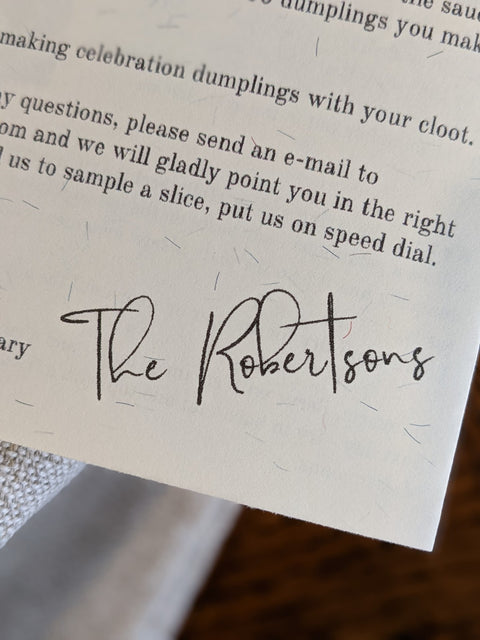 the sauc
dumplings you mak
making celebration dumplings with your cloot.
y questions, please send an e-mail to
om and we will gladly point you in the right
us to sample a slice, put us on speed dial.
ary
The Robertsons